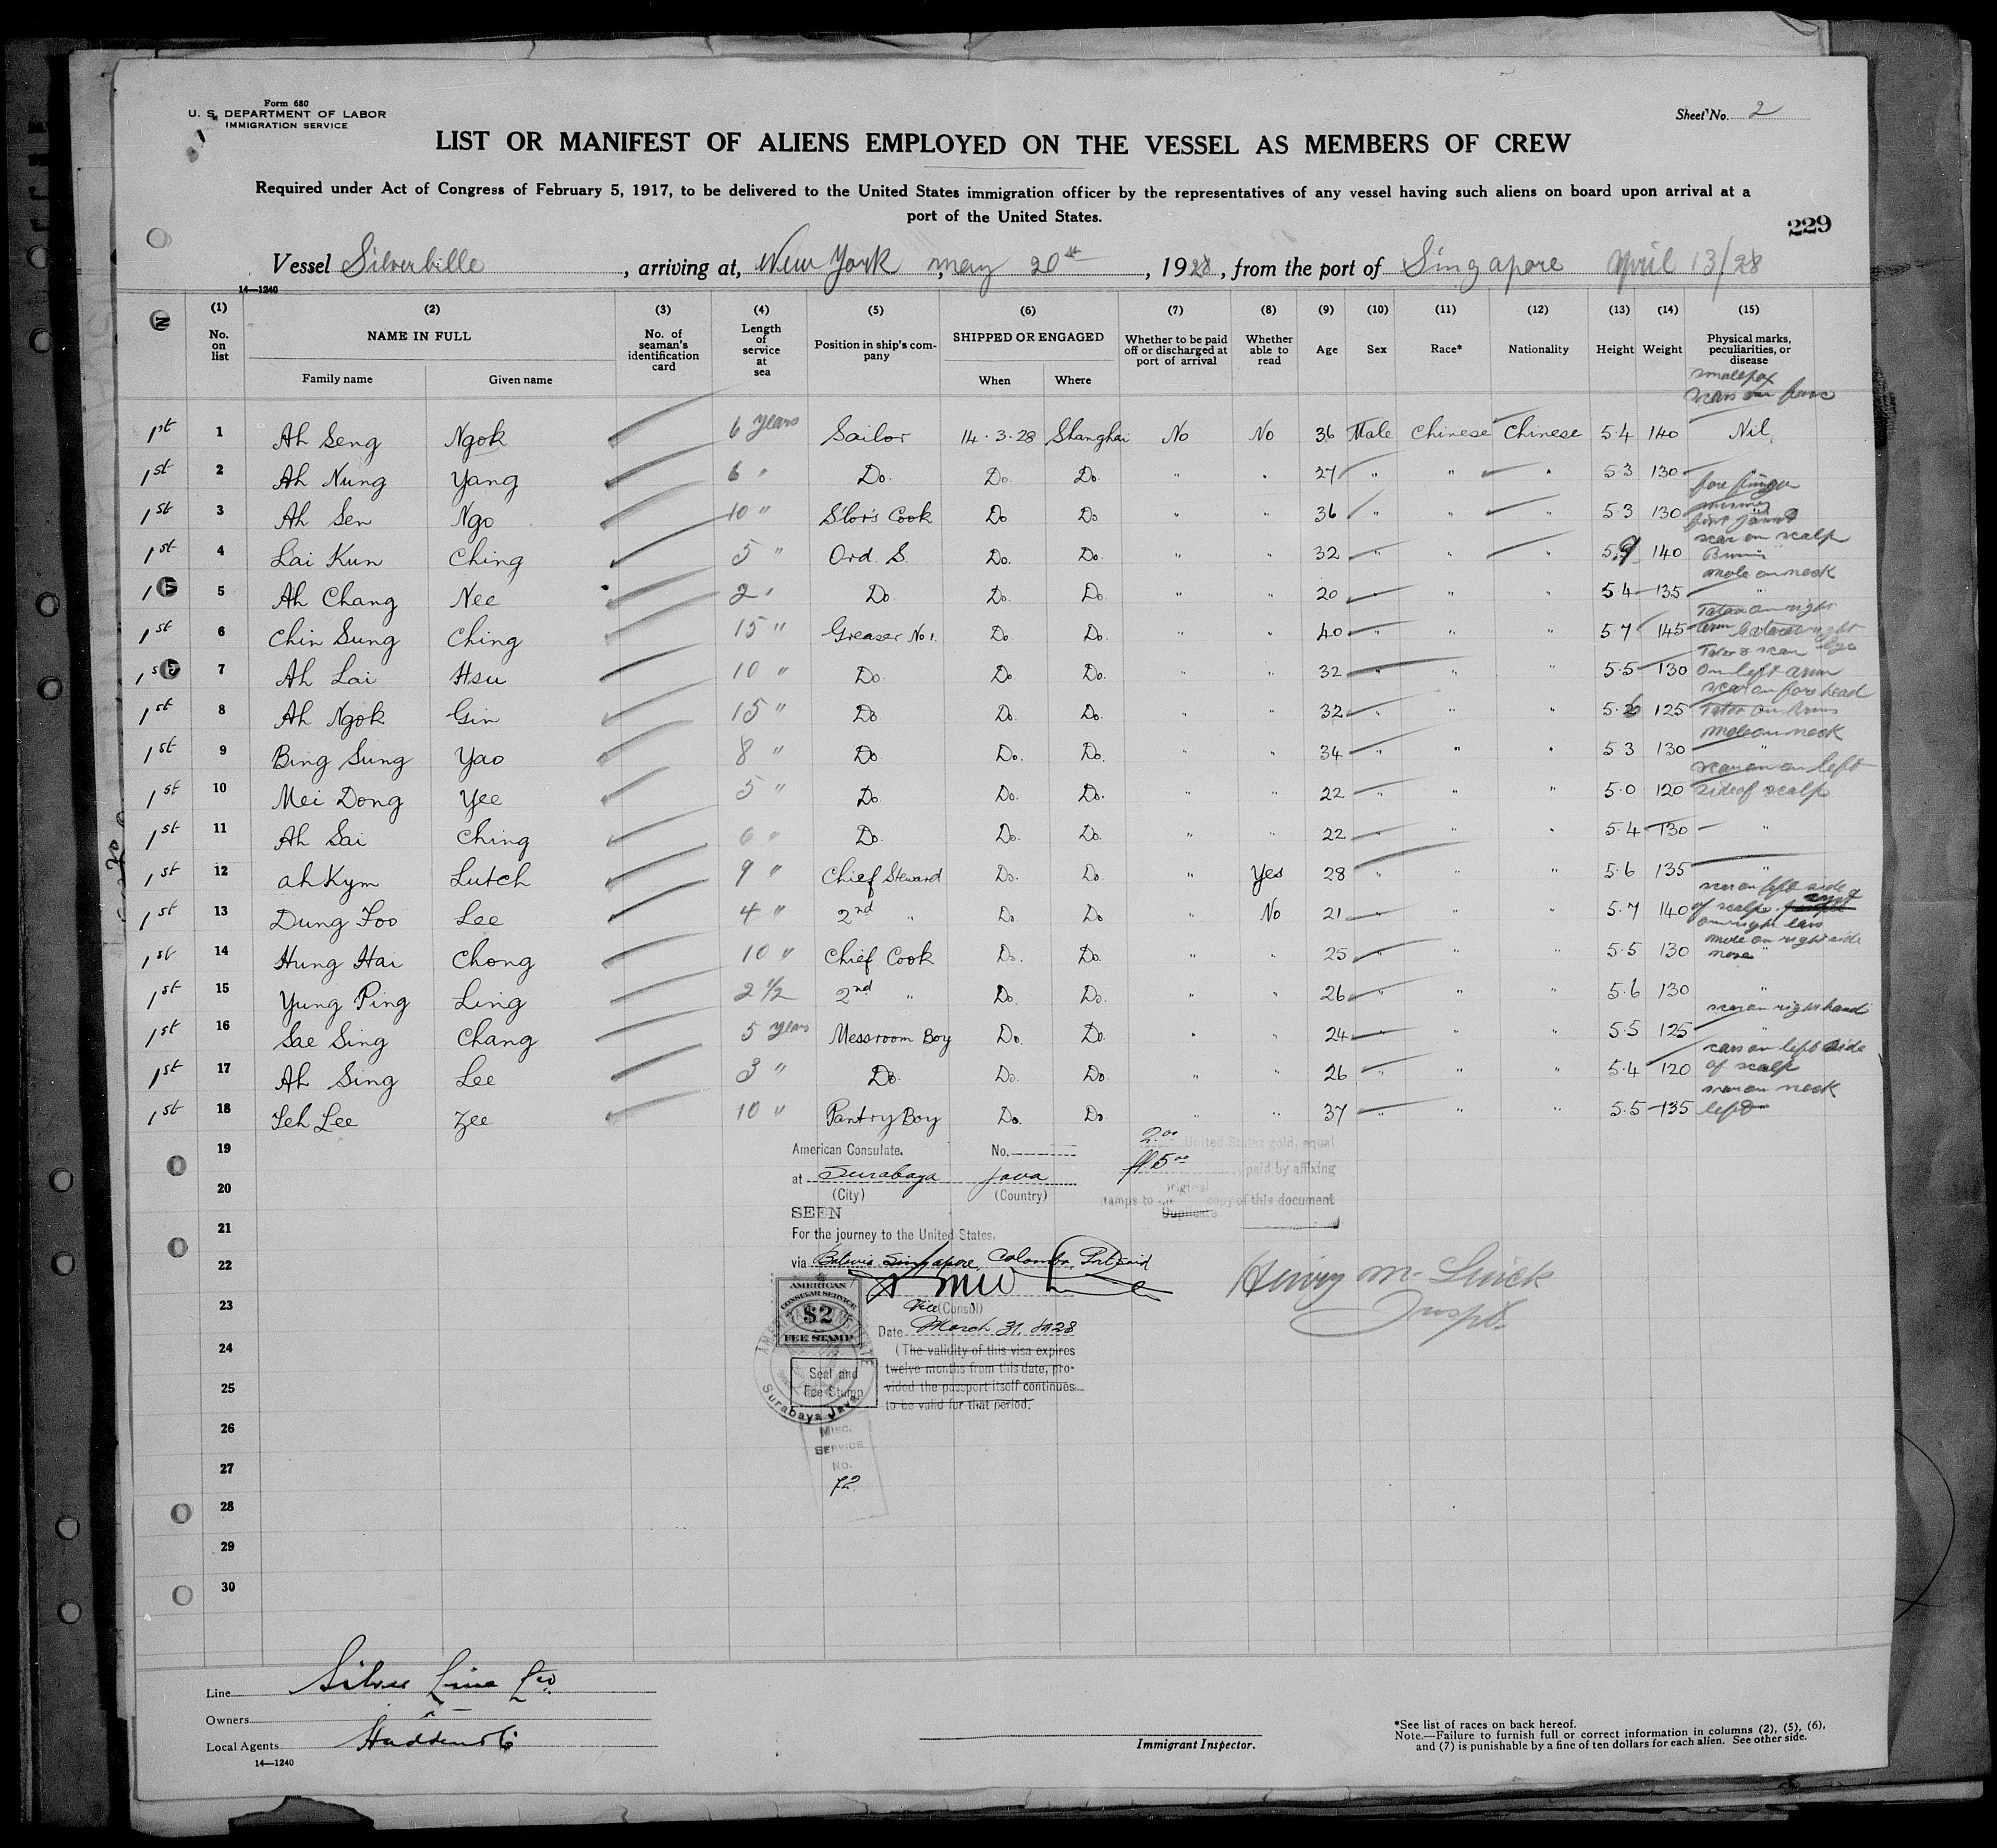 Form 680
U. S. DEPARTMENT OF LABOR
IMMIGRATION SERVICE
Sheet No. 2
LIST OR MANIFEST OF ALIENS EMPLOYED ON THE VESSEL AS MEMBERS OF CREW
Required under Act of Congress of February 5, 1917, to be delivered to the United States immigration officer by the representatives of any vessel having such aliens on board upon arrival at a
port of the United States.
229
Vessel Silverbelle, arriving at, New York May 20th, 1928, from the port of Singapore April 13/28
14—1240
(1) (2) (3) (4) (5) (6) (7) (8) (9) (10) (11) (12) (13) (14) (15)
No. on list NAME IN FULL No. of seaman's identification card Length of service at sea Position in ship's company SHIPPED OR ENGAGED Whether to be paid off or discharged at port of arrival Whether able to read Age Sex Race* Nationality Height Weight Physical marks, peculiarities, or disease
Family name Given name When Where
smallpox
scars on face
1st 1 Ah Seng Ngok 6 years Sailor 14.3.28 Shanghai No No 36 Male Chinese Chinese 5.4 140 Nil
1st 2 Ah Nung Yang 6 " Do. Do. Do. " " 27 " " " 5.3 130
fore finger
1st 3 Ah Sen Ngo 10 " S'lor's Cook Do Do " " 36 " " " 5.3 130 missing
first joint
scar on scalp
1st 4 Lai Kun Ching 5 " Ord. S. Do. Do. " " 32 " " " 5.9 140
mole on neck
1st 5 Ah Chang Nee 2 " Do. Do. Do. " " 20 " " " 5.4 135 "
Tatoo on right
1st 6 Chin Sung Ching 15 " Greaser No 1. Do Do. " " 40 " " " 5.7 145 arm right
1st 7 Ah Lai Hsu 10 " Do. Do Do. " " 32 " " " 5.5 130 on left arm
scar on forehead
1st 8 Ah Ngok Gin 15 " Do Do. Do. " " 32 " " " 5.6 125 Tatoo on arms
mole on neck
1st 9 Bing Sung Yao 8 " Do. Do. Do. " " 34 " " " 5.3 130 "
scar on left
1st 10 Mei Dong Yee 5 " Do Do. Do. " " 22 " " " 5.0 120 side of scalp
1st 11 Ah Sai Ching 6 " Do. Do. Do. " " 22 " " " 5.4 130 "
1st 12 Ah Kym Lutch 9 " Chief Steward Do. Do " Yes 28 " " " 5.6 135 "
scar on left side
1st 13 Dung Foo Lee 4 " 2nd " Do Do " No 21 " " " 5.7 140 of scalp
on right ear
mole on right side
1st 14 Hung Hai Chong 10 " Chief Cook Do. Do. " " 25 " " " 5.5 130 nose "
1st 15 Yung Ping Ling 2 1/2 2nd " Do. Do. " " 26 " " " 5.6 130 "
scar on right hand
1st 16 Sae Sing Chang 5 years Messroom Boy Do. Do. " " 24 " " " 5.5 125 "
scar on left side
1st 17 Ah Sing Lee 3 " Do. Do. Do. " " 26 " " " 5.4 120 of scalp
scar on neck
1st 18 Yeh Lee Zee 10 " Pantry Boy Do. Do. " " 37 " " " 5.5 135 left
19
20
21
22
23
24
25
26
27
28
29
30
American Consulate. No.
at Surabaya Java
(City) (Country)
SEEN
For the journey to the United States,
via Batavia Singapore, Colombo, Port Said
Vice (Consul)
Date March 31, 1928
(The validity of this visa expires
twelve months from this date, pro-
vided the passport itself continues
to be valid for that period.
2.00 United States gold, equal
fl 5.00 paid by affixing
original
stamps to copy of this document
Duplicate
AMERICAN
CONSULAR SERVICE
$2
FEE STAMP
Seal and
Fee Stamp
Surabaya Java
MISC.
SERVICE
NO.
72
Henry M.
Insptr.
Line Silver Line Ltd.
Owners "
Local Agents
14—1240
Immigrant Inspector.
*See list of races on back hereof.
Note.—Failure to furnish full or correct information in columns (2), (5), (6),
and (7) is punishable by a fine of ten dollars for each alien. See other side.